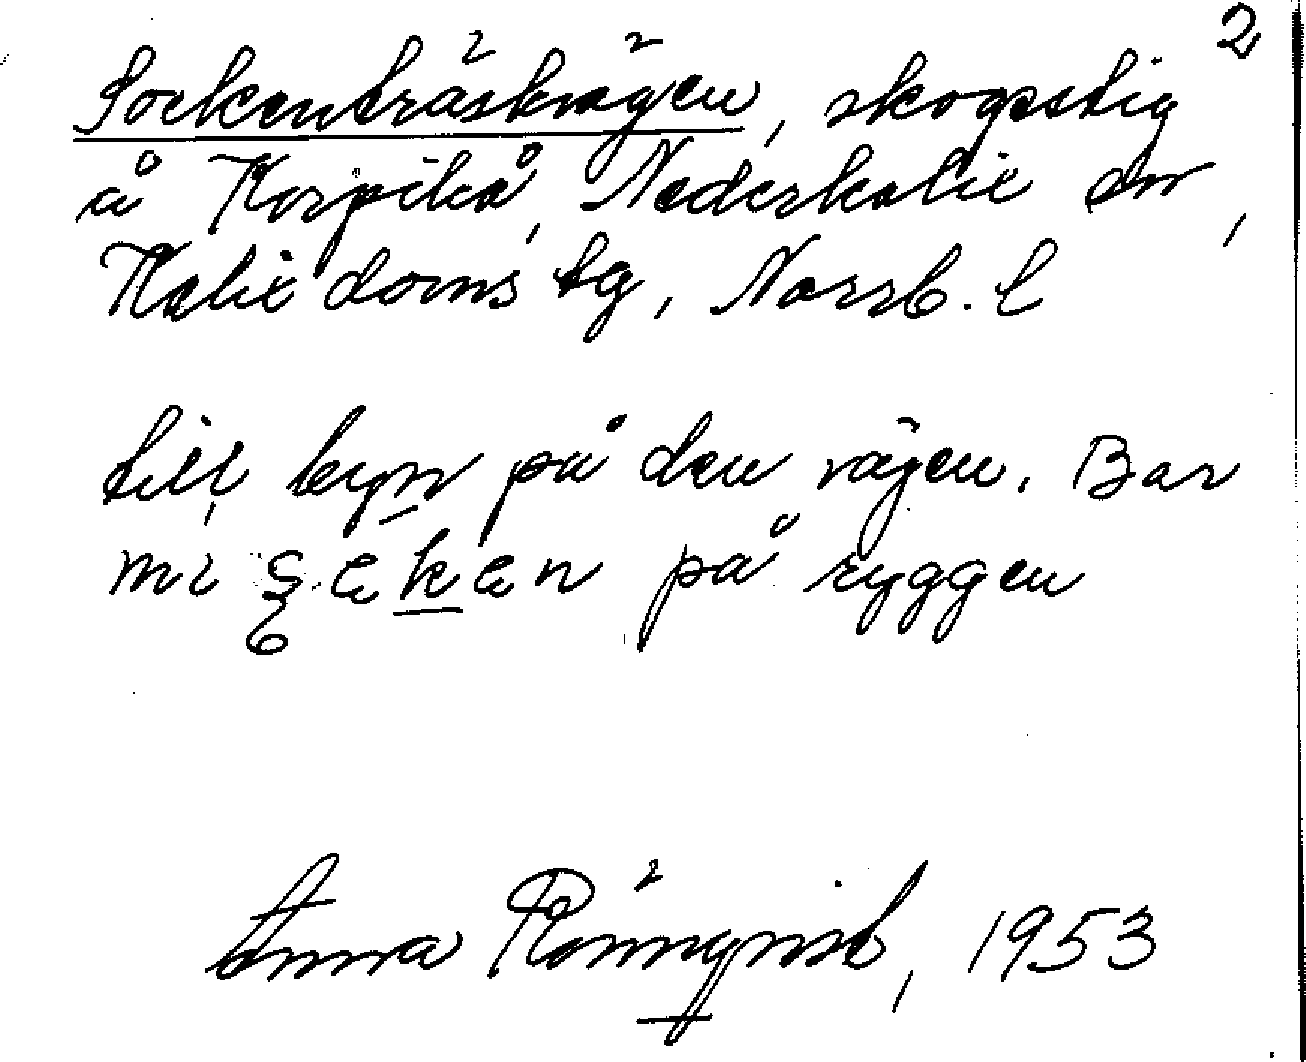 2
Sockenträskvägen, skogsstig
å Korpikå, Nederkalix sn,
Kalix doms tg, Norrb. l
till byn på den vägen. Bar
mjȩken på ryggen
Anna Rönnqvist, 1953